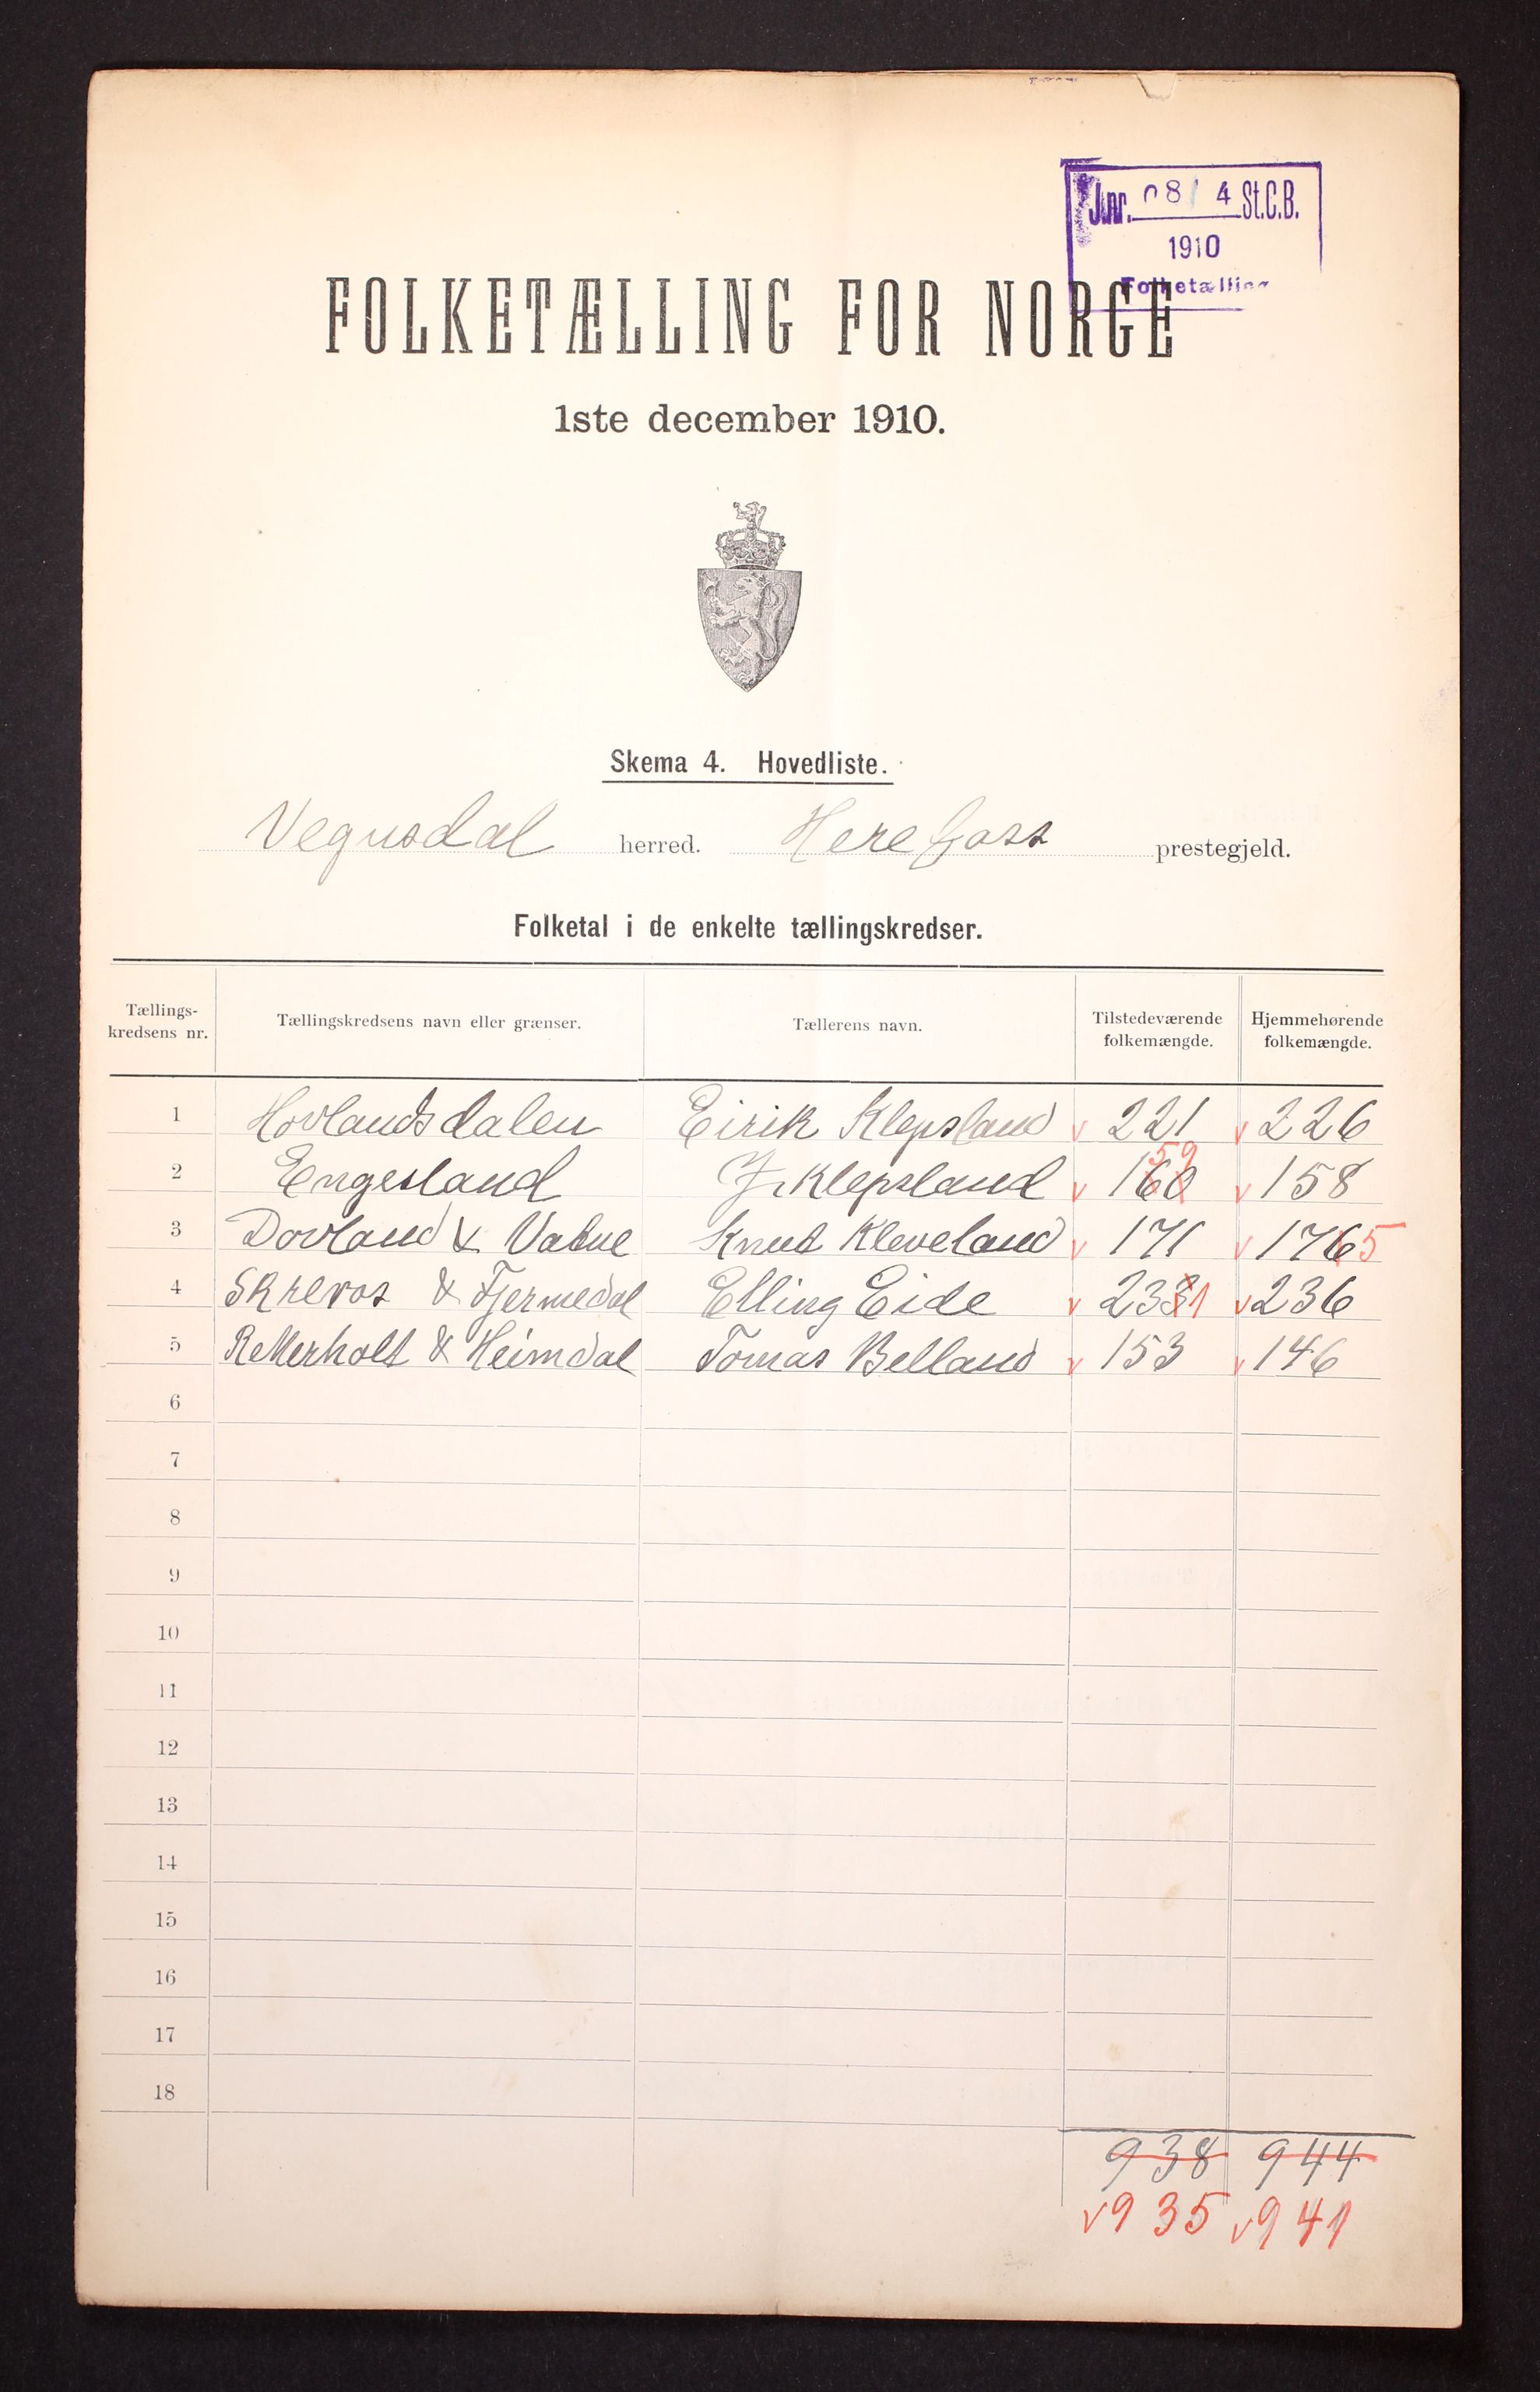 J.nr. 08 4 St.C.B.
1910
Folketælling
FOLKETÆLLING FOR NORGE
1ste december 1910.
Skema 4. Hovedliste.
Vegusdal herred. Herefoss prestegjeld.
Folketal i de enkelte tællingskredser.
Tællings-kredsens nr. Tællingskredsens navn eller grænser. Tællerens navn. Tilstedeværende folkemængde. Hjemmehørende folkemængde.
1 Hovlandsdalen Eirik Klepsland v 221 v 226
59
2 Engesland Klepsland v 160 v 158
3 Dovland & Vatne Knut Kleveland v 171 v 176 5
4 Skreros & Fjermedal Elling Eide v 233 1 v 236
5 Retterholt & Heimdal Tomas Belland v 153 v 146
6
7
8
9
10
11
12
13
14
15
16
17
18
938 944
v 935 v 941